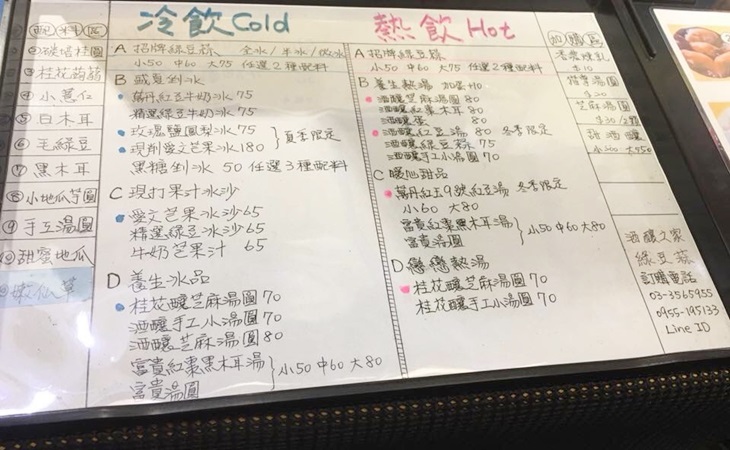 配料區
桂圓
③桂花蒟蒻
④小薏仁
⑤白木耳
⑥毛綠豆
⑦黑木耳
⑧小地瓜芋圓
⑨手工湯圓
⑩甜蜜地瓜
嫩仙草
冷飲Cold
A 招牌綠豆蒜 全冰/半冰/微冰
小50 中60 大75 任選2種配料
B 盛夏剉冰
萬丹紅豆牛奶冰 75
精選綠豆牛奶冰 75
玫瑰鹽鳳梨冰 75
現削愛文芒果冰 180
夏季限定
黑糖剉冰 50 任選3種配料
C 現打果汁冰沙
愛文芒果冰沙 65
精選綠豆冰沙 65
牛奶芒果汁 65
D 養生冰品
桂花釀芝麻湯圓 70
酒釀手工小湯圓 70
酒釀芝麻湯圓 80
富貴紅棗黑木耳湯
富貴湯圓
小50 中60 大80
熱飲Hot
A 招牌綠豆蒜
小50 中60 大75 任選2種配料
B 養生熱湯 加蛋+10
酒釀芝麻湯圓 80
酒釀紅棗木耳 80
酒釀蛋 80
酒釀紅豆湯 80 冬季限定
酒釀綠豆蒜 75
酒釀手工小湯圓 70
C 暖心甜品
萬丹紅豆9號紅豆湯 冬季限定
小60 大80
富貴紅棗黑木耳湯
富貴湯圓
小50 中60 大80
D 戀戀熱湯
桂花釀芝麻湯圓 70
桂花釀手工小湯圓 70
加購區
煉乳
$10
湯圓
$20
芝麻湯圓
$30/2顆
甜酒釀
小200 大350
酒釀之家
綠豆蒜
訂購電話
03-3565955
0955-195133
Line ID